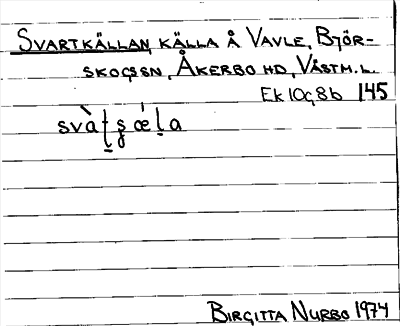 SVARTKÄLLAN, KÄLLA Å VAVLE, BJÖR-
SKOGSSN, ÅKERBO HD, VÄSTM. L.
EK 10g8b 145
BIRGITTA NURBO 1974